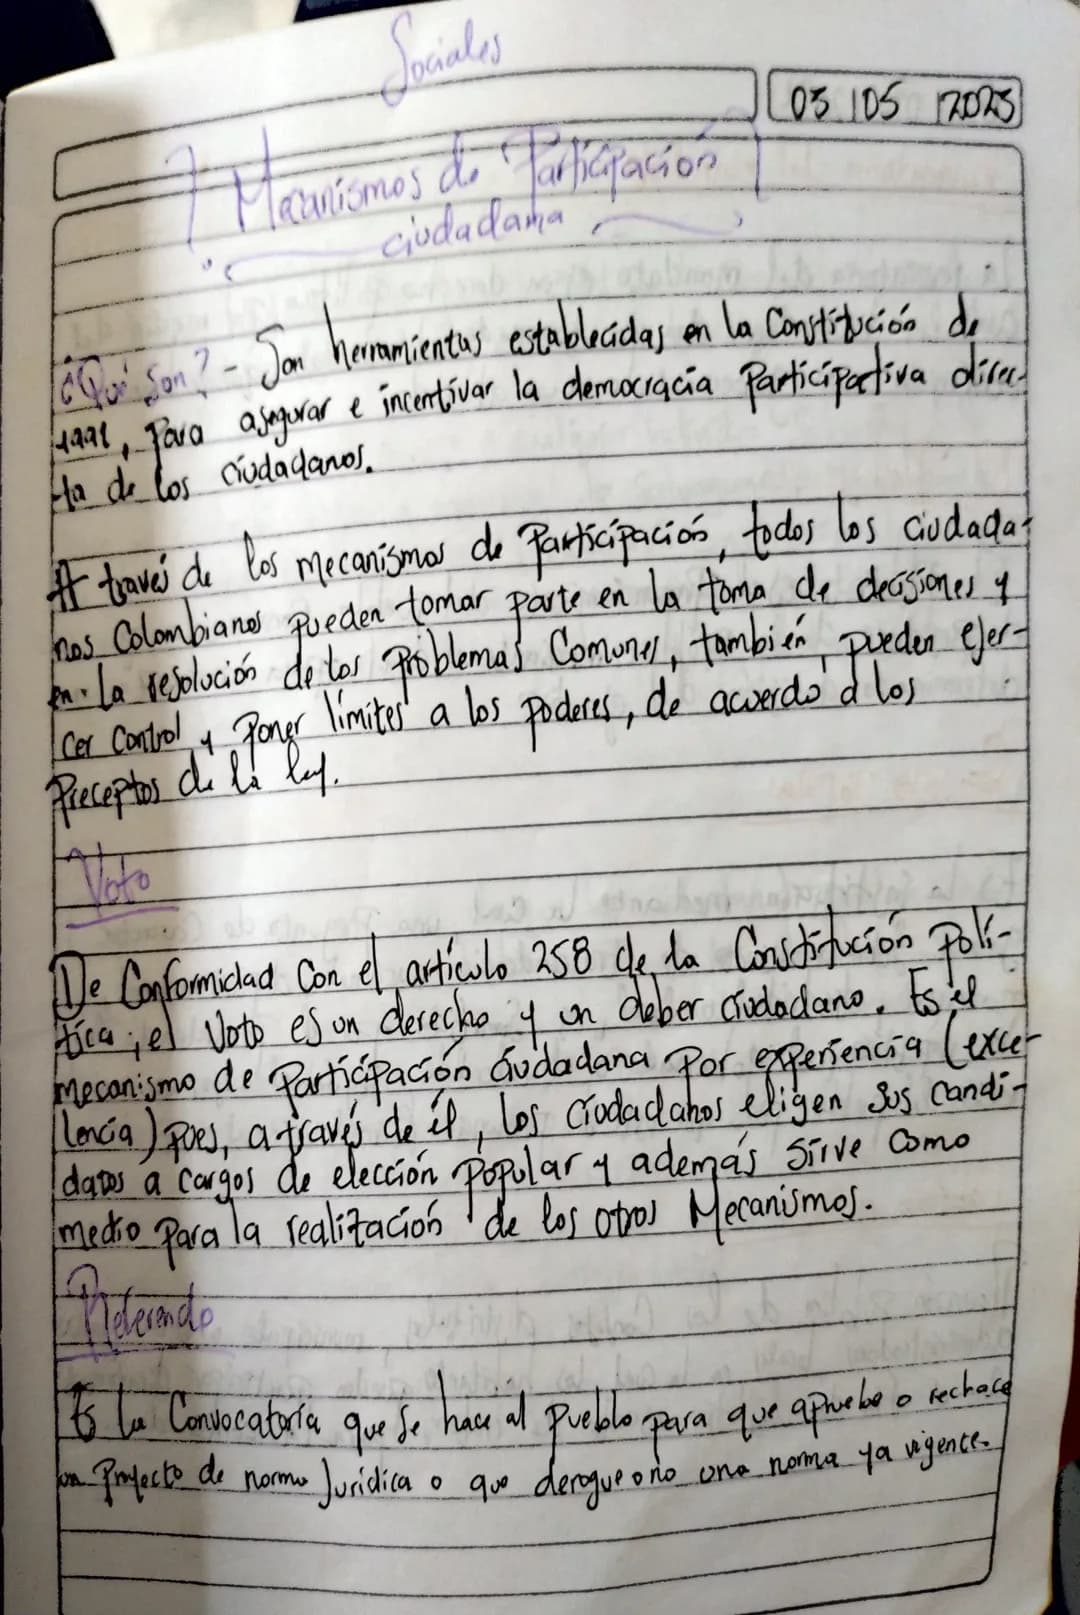 Sociales
03 105 12023
Mecanismos de Participación
ciudadana
¿Qué son? - Son herramientas establecidas en la Constitución de
1991, Para asegurar e incentivar la democracia Participativa direc-
ta de los ciudadanos.
A través de los mecanismos de Participación, todos los ciudada-
nos Colombianos pueden tomar parte en la toma de decisiones y
en la resolución de los Problemas Comunes, también, pueden ejer-
cer Control y Poner límites a los poderes, de acuerdo a los
Preceptos de la ley.
Voto
De Conformidad Con el artículo 258 de la Constitución Polí-
tica; el Voto es un derecho y un deber ciudadano. Es el
mecanismo de Participación ciudadana Por experiencia (exce-
lencia) pues, a través de él, los Ciudadanos eligen sus candi-
datos a cargos de elección Popular y además sirve como
medio Para la realización de los otros Mecanismos.
Referendo
Es la Convocatoria que se hace al Pueblo para que apruebe o rechace
un Proyecto de norma Jurídica o que derogue o no una norma ya vigente.